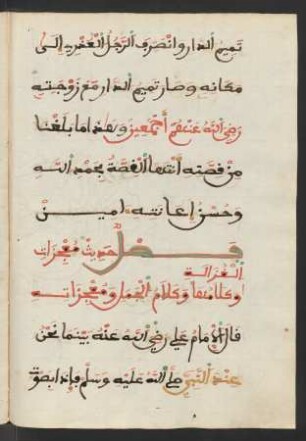 تميم الدار وانصرف الرجل العفريت إلى
مكانه وصار تميم الدار مع زوجته
رضي الله عنهم أجمعين وهذا ما بلغنا
من قصته انتهت القصة بحمد الله
وحسن إعانته امين
فصل حديث معجزات
الغزالة
وكلامها وكلام الجمل ومعجزاته
قال الإمام علي رضي الله عنه بينما نحن
عند النبي صلى الله عليه وسلم فإذا بصوت